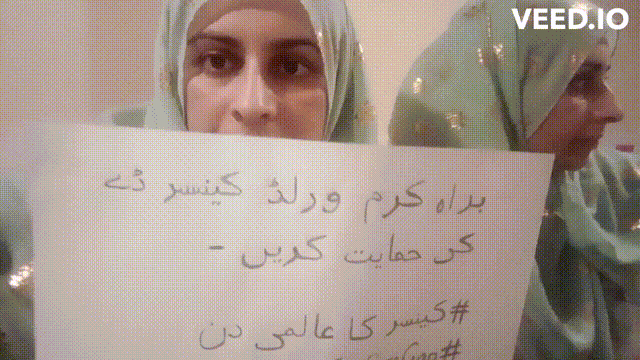 VEED.IO
براہ کرم ورلڈ کینسر ڈے
کی حمایت کریں -
#کیسر کا عالمی دن